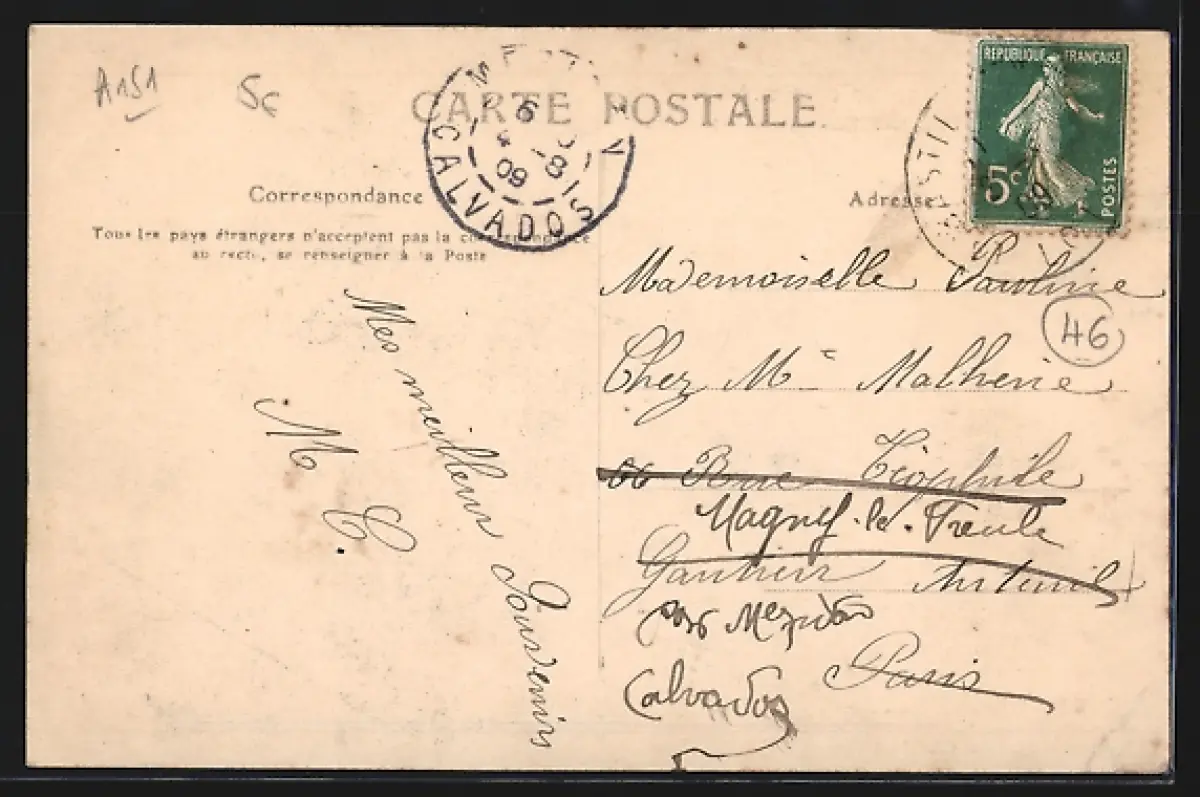 A151
5c
CARTE POSTALE
RÉPUBLIQUE FRANÇAISE
5c
POSTES
CALVADOS
6
09
Correspondance
Adresse
Tous les pays étrangers n'acceptent pas la correspondance
au recto, se renseigner à la Poste
Mademoiselle Pauline
46
Chez Me Malherie
Rue Téophile
Magny-le-Freule
Gautier Auteuil
par Mezidon
Paris
Calvados
Mes meilleurs Souvenirs
M C.